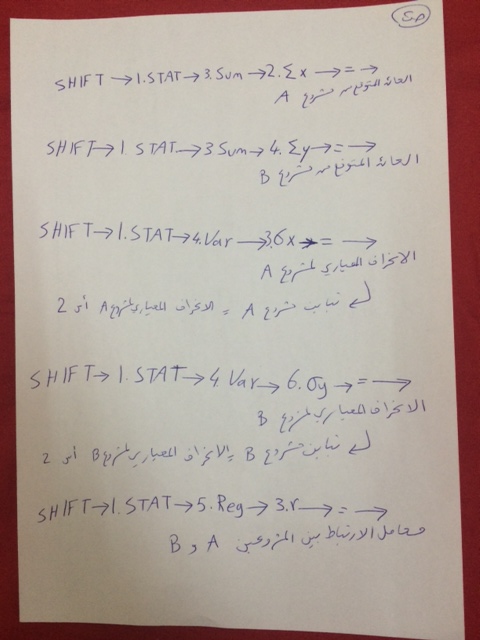 SHIFT → 1.STAT → 3.Sum → 2.Σx → = →
العائد المتوقع من مشروع A
SHIFT → 1.STAT → 3.Sum → 4.Σy → = →
العائد المتوقع من مشروع B
SHIFT → 1.STAT → 4.Var → 3.σx → = →
الانحراف المعياري لمشروع A
↵ تباين مشروع A = الانحراف المعياري لمشروع A أس 2
SHIFT → 1.STAT → 4 Var → 6.σy → = →
الانحراف المعياري لمشروع B
↵ تباين مشروع B = الانحراف المعياري لمشروع B أس 2
SHIFT → 1.STAT → 5.Reg → 3.r → = →
معامل الارتباط بين المشروعين A و B